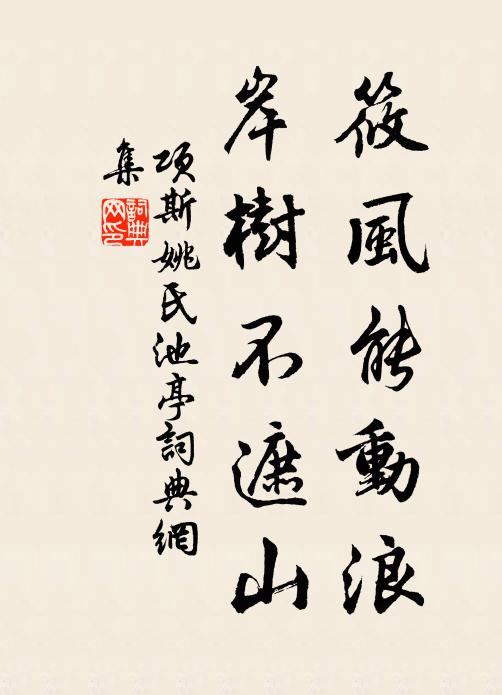 筱風能動浪
岸樹不遮山
項斯姚氏池亭詞典網
集
詞典網印